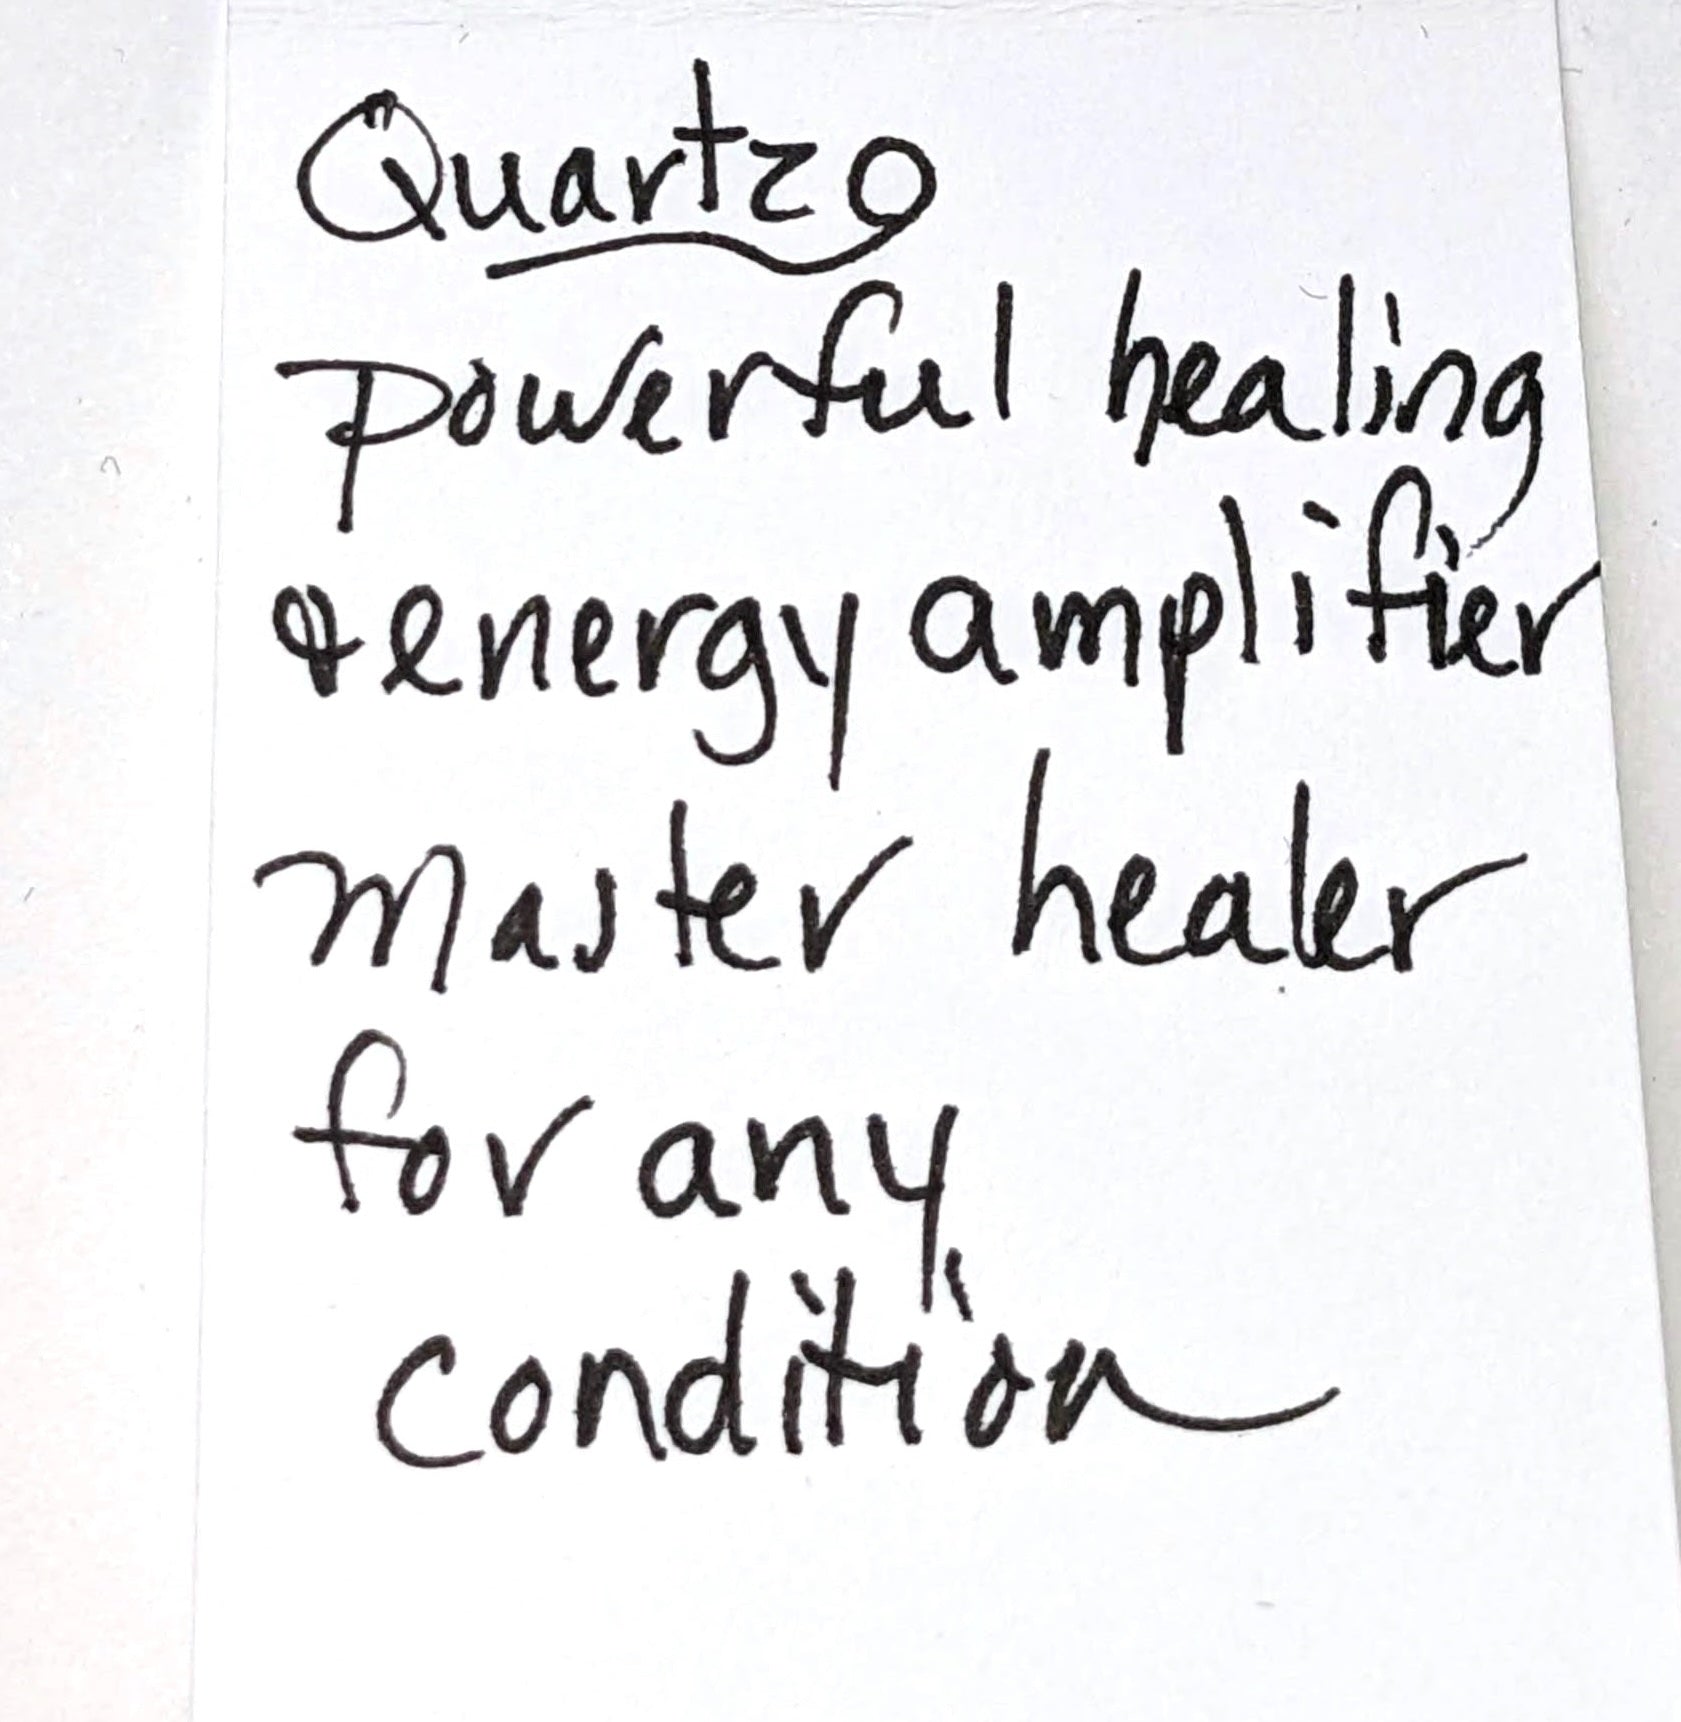 Quartzo
powerful healing
& energy amplifier
master healer
for any
condition